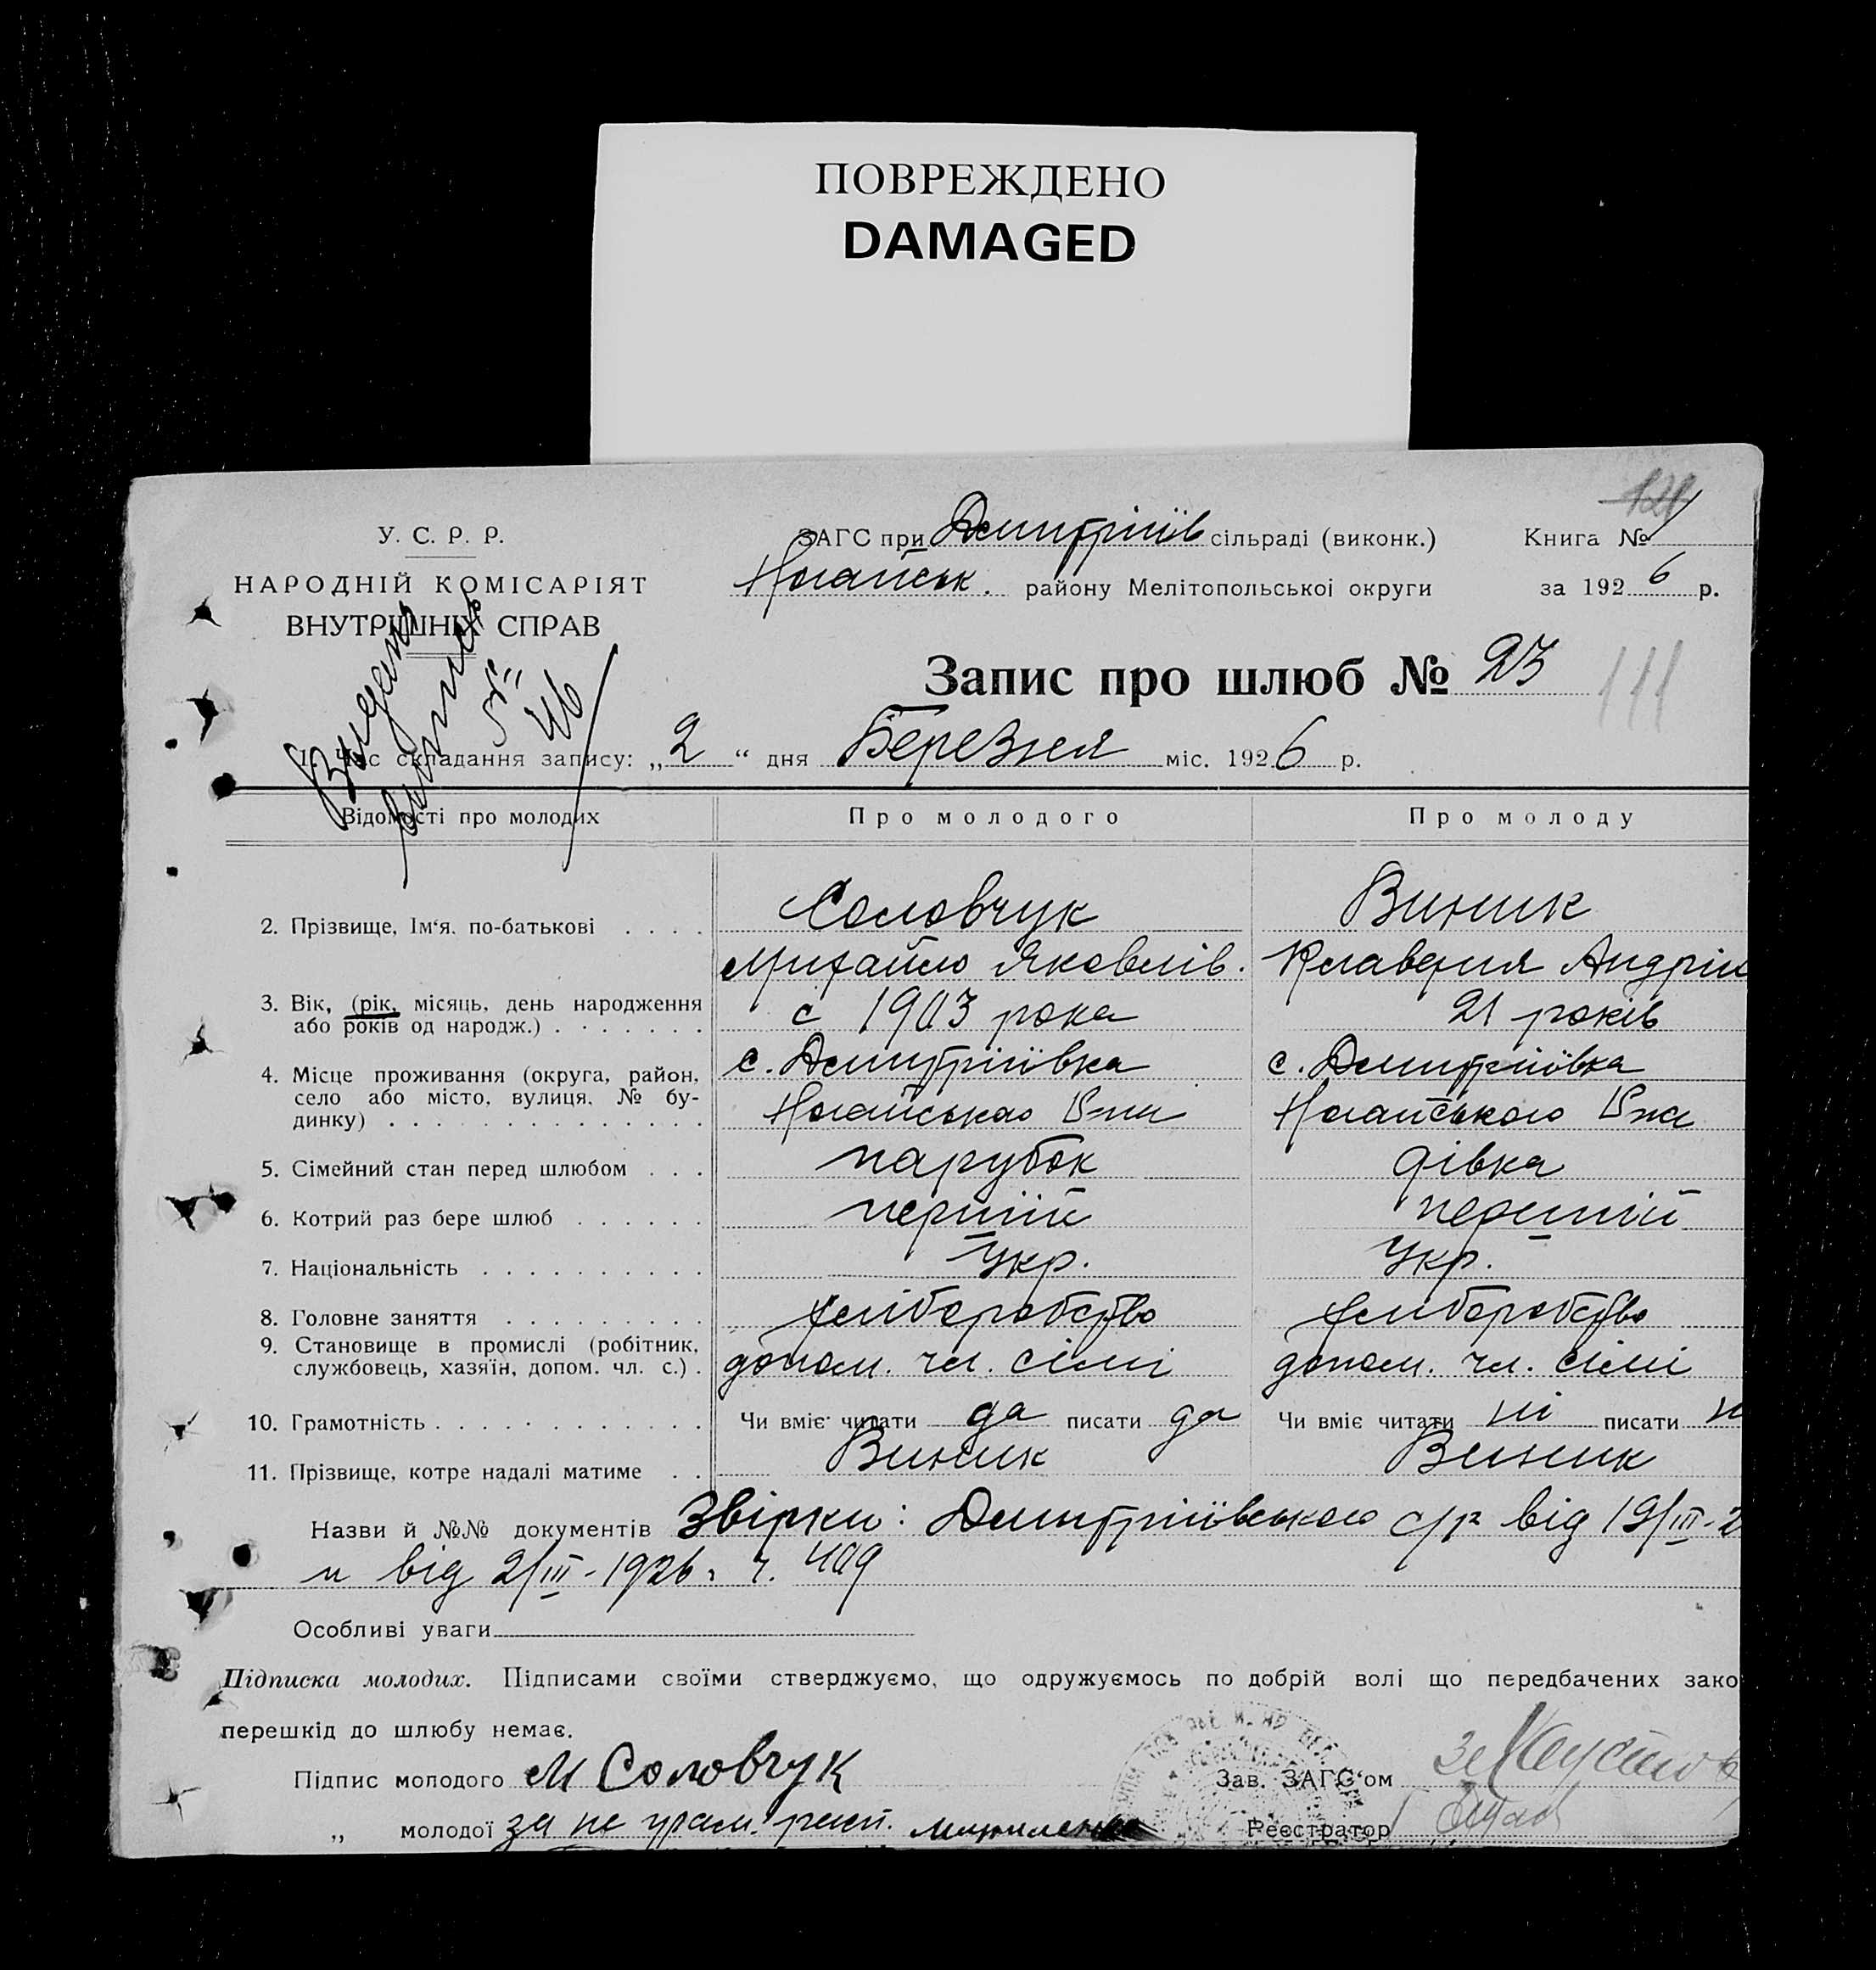 ПОВРЕЖДЕНО
DAMAGED
121
У. С. Р. Р.
НАРОДНІЙ КОМІСАРІЯТ
ВНУТРІШНІХ СПРАВ
ЗАГС при Дмитріїв сільраді (виконк.)
Ногайськ. району Мелітопольської округи
Книга №
за 1926 р.
Запис про шлюб № 23
111
1. Час складання запису: „2“ дня Березня міс. 1926 р.
Відомості про молодих Про молодого Про молоду
2. Прізвище, Ім‘я, по-батькові . . . . Соловчук Виник
Михайло Яковлів. Клавдия Андрії
3. Вік, (рік, місяць, день народження
або років од народж.) . . . . . . . с 1903 рока 21 років
4. Місце проживання (округа, район,
село або місто, вулиця, № бу-
динку) . . . . . . . . . . . . . .
с. Дмитріївка с. Дмитріївка
Ногайського Р-ну Ногайського Р-ну
5. Сімейний стан перед шлюбом . . . парубок дівка
6. Котрий раз бере шлюб . . . . . . перший перший
7. Національність . . . . . . . . . . Укр. Укр.
8. Головне заняття . . . . . . . . . хліборобство хліборобство
9. Становище в промислі (робітник,
службовець, хазяїн, допом. чл. с.) . допом. чл. сімї допом. чл. сімї
10. Грамотність . . . . . . . . . . . . Чи вміє читати да писати да Чи вміє читати ні писати н
11. Прізвище, котре надалі матиме . . Виник Виник
Назви й №№ документів Звірки: Дмитріївського с/р від 19/III-2
и від 2/III-1926. ч. 409
Особливі уваги
Підписка молодих. Підписами своїми стверджуємо, що одружуємось по добрій волі що передбачених зако
перешкід до шлюбу немає.
Підпис молодого М Соловчук Зав. ЗАГС‘ом
„ молодої за не грам. расп. Реєстратор